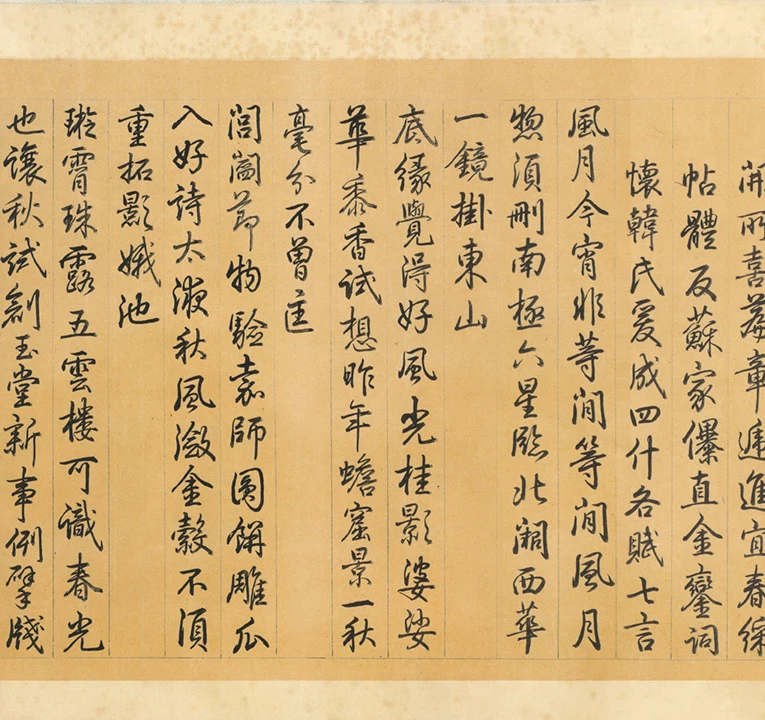 開所喜章遞進宜春綵
帖體反蘇家儤直金鑾詞
懷韓氏爰成四什各賦七言
風月今宵非等閒等閒風月
惣須刪南極六星臨北闕西華
一鏡掛東山
底緣覺得好風光桂影婆娑
華黍香試想昨年蟾窟景一秋
毫分不曾匡
閶闔節物驗嘉師圓餅雕瓜
入好詩太液秋風瀲金縠不須
重拓影娥池
璇霄珠露五雲樓可識春光
也讓秋試創玉堂新事例擘牋